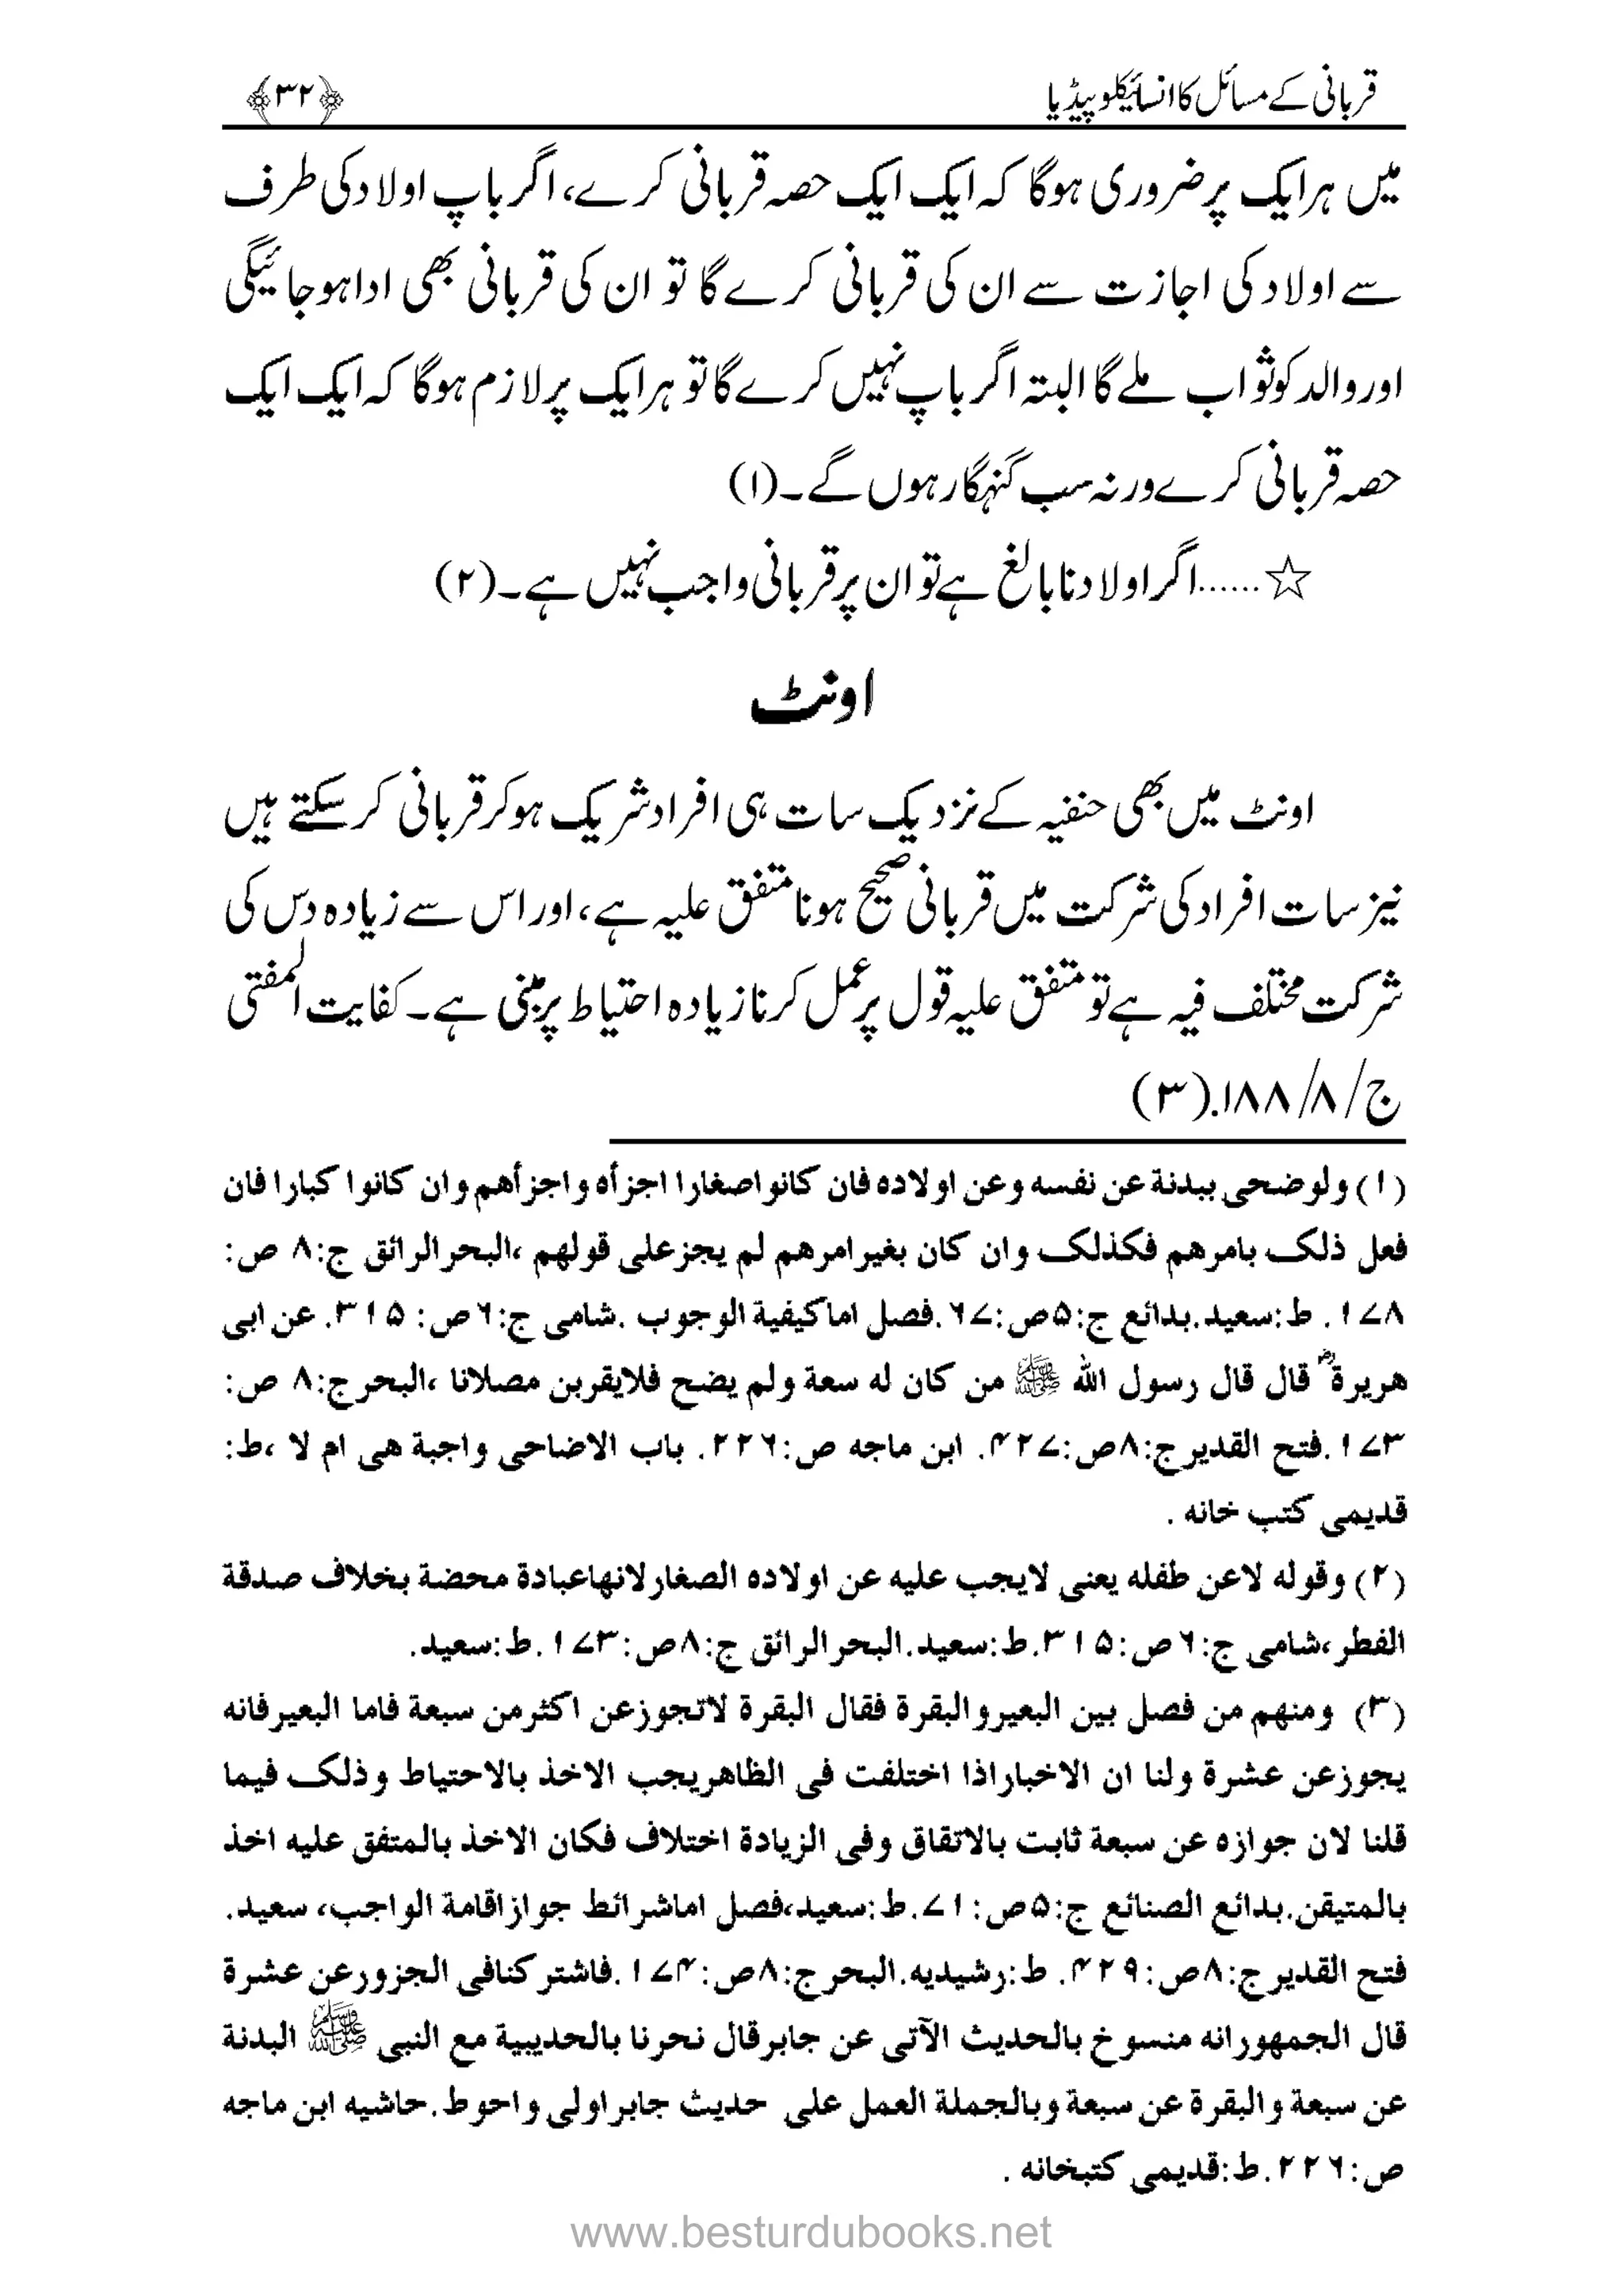 قربانی کے مسائل کا انسائیکلوپیڈیا ﴿۳۲﴾
میں ہر ایک پر ضروری ہوگا کہ ایک ایک حصہ قربانی کرے، اگر باپ اولاد کی طرف
سے اولاد کی اجازت سے ان کی قربانی کرے گا تو ان کی قربانی بھی ادا ہو جائیگی
اور والد کو ثواب ملے گا البتہ اگر باپ نہیں کرے گا تو ہر ایک پر لازم ہوگا کہ ایک ایک
حصہ قربانی کرے ورنہ سب گنہگار ہوں گے۔(۱)
☆......اگر اولاد نابالغ ہے تو ان پر قربانی واجب نہیں ہے۔(۲)
اونٹ
اونٹ میں بھی حنفیہ کے نزدیک سات ہی افراد شریک ہوکر قربانی کر سکتے ہیں
نیز سات افراد کی شرکت میں قربانی صحیح ہونا متفق علیہ ہے، اور اس سے زیادہ دس کی
شرکت مختلف فیہ ہے تو متفق علیہ قول پر عمل کرنا زیادہ احتیاط پر مبنی ہے۔ کفایت المفتی
ج/۸/۱۸۸.(۳)
(۱) ولوضحی ببدنة عن نفسه وعن اولاده فان كانوا صغارا اجزأه واجزأهم وان كانوا كبارا فان
فعل ذلک بامرهم فكذلک وان كان بغير امرهم لم يجز علی قولهم ،البحر الرائق ج:۸ ص:
۱۷۸ . ط:سعيد.بدائع ج:۵ص:۶۷.فصل اما كيفية الوجوب .شامی ج:۶ ص: ۳۱۵. عن ابی
هريرةؓ قال قال رسول الله ﷺ من كان له سعة ولم يضح فلايقربن مصلانا ،البحر ج:۸ ص:
۱۷۳ .فتح القدير ج:۸ص:۴۲۷. ابن ماجه ص:۲۲۶. باب الاضاحی واجبة هی ام لا ،ط:
قديمی كتب خانه .
(۲) وقوله لاعن طفله يعنی لايجب عليه عن اولاده الصغار لانها عبادة محضة بخلاف صدقة
الفطر،شامی ج:۶ ص:۳۱۵.ط:سعيد.البحر الرائق ج:۸ص:۱۷۳.ط:سعيد.
(۳) ومنهم من فصل بين البعير والبقرة فقال البقرة لاتجوز عن اكثر من سبعة فاما البعير فانه
يجوز عن عشرة ولنا ان الاخبار اذا اختلفت فی الظاهر يجب الاخذ بالاحتياط وذلک فيما
قلنا لان جوازه عن سبعة ثابت بالاتقاق وفی الزيادة اختلاف فكان الاخذ بالمتفق عليه اخذ
بالمتيقن.بدائع الصنائع ج:۵ص: ۷۱.ط:سعيد،فصل اما شرائط جواز اقامة الواجب، سعيد.
فتح القدير ج:۸ص:۴۲۹. ط:رشيديه.البحر ج:۸ص:۱۷۴.فاشتركنا فی الجزور عن عشرة
قال الجمهور انه منسوخ بالحديث الآتی عن جابر قال نحرنا بالحديبية مع النبی ﷺ البدنة
عن سبعة والبقرة عن سبعة وبالجملة العمل علی حديث جابر اولی واحوط.حاشيه ابن ماجه
ص:۲۲۶.ط:قديمی كتبخانه .
www.besturdubooks.net